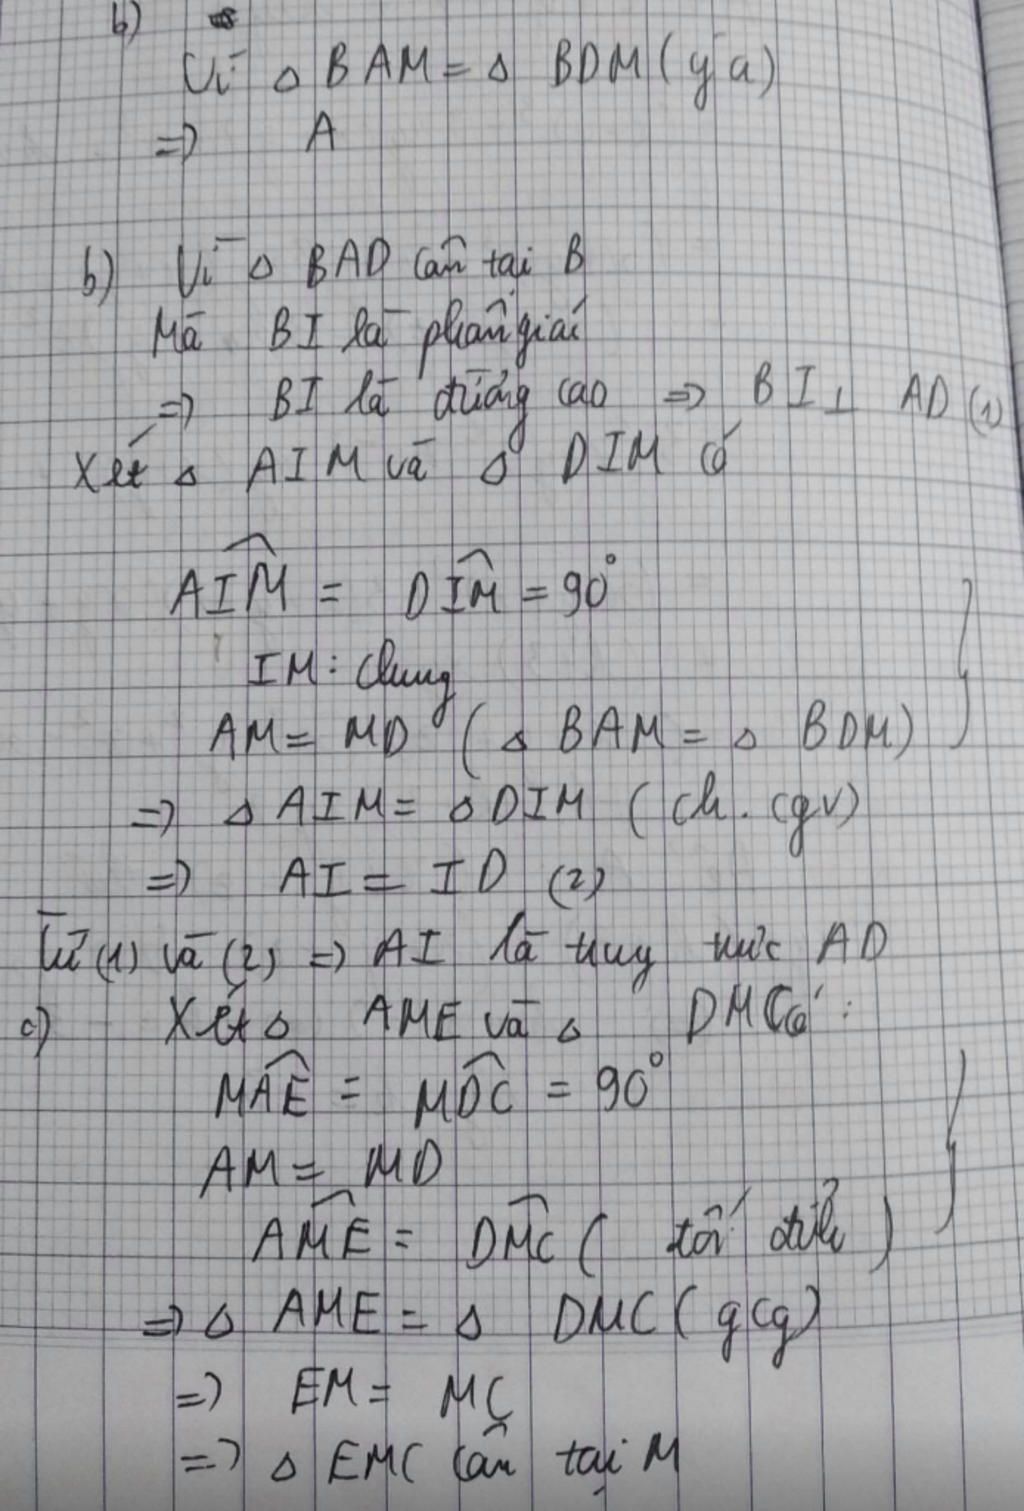 b)
Vì Δ BAM = Δ BDM (ý a)
=> A
b) Vì Δ BAD cân tại B
Mà BI là phân giác
=> BI là đường cao => BI ⊥ AD (1)
Xét Δ AIM và Δ DIM có
\widehat{AIM} = \widehat{DIM} = 90°
IM: chung
AM = MD (Δ BAM = Δ BDM)
=> Δ AIM = Δ DIM (ch. cgv)
=> AI = ID (2)
Từ (1) và (2) => AI là trung trực AD
c) Xét Δ AME và Δ DMC có:
\widehat{MAE} = \widehat{MDC} = 90°
AM = MD
\widehat{AME} = \widehat{DMC} (đối đỉnh)
=> Δ AME = Δ DMC (gcg)
=> EM = MC
=> Δ EMC cân tại M